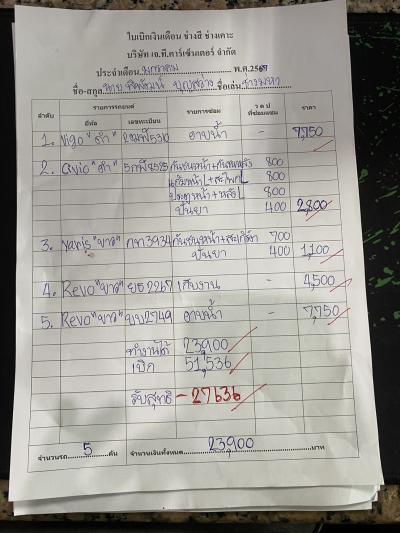 ใบเบิกเงินเดือน ช่างสี ช่างเคาะ
บริษัท เจ.ที.คาร์เซ็นเตอร์ จำกัด
ประจำเดือน มกราคม พ.ศ.2568
ชื่อ-สกุล นาย บุญสว่าง ชื่อเล่น
ลำดับ รายการรถยนต์ รายการซ่อม ว ด ป ที่ซ่อมแซม ราคา
ยี่ห้อ เลขทะเบียน
1. Vigo "ดำ" 5310 อาบน้ำ - 7,750
2. Civic "ดำ" 8525 กันชนหน้า+กันชนหลัง 800
แก้มหน้า L+สเกิร์ต L 800
ประตูหน้า+หลัง L 800
ปั่นยา 400 2,800
3. Yaris "ขาว" กท 3934 กันชนหน้า+สเกิร์ต 700
ปั่นยา 400 1,100
4. Revo "ขาว" ยธ 2267 เก็บงาน - 4,500
5. Revo "ขาว" 2749 อาบน้ำ - 7,750
ทำงานได้ 23,900
เบิก 51,536
รับสุทธิ -27636
จำนวนรถ 5 คัน จำนวนเงินทั้งหมด 23,900 บาท